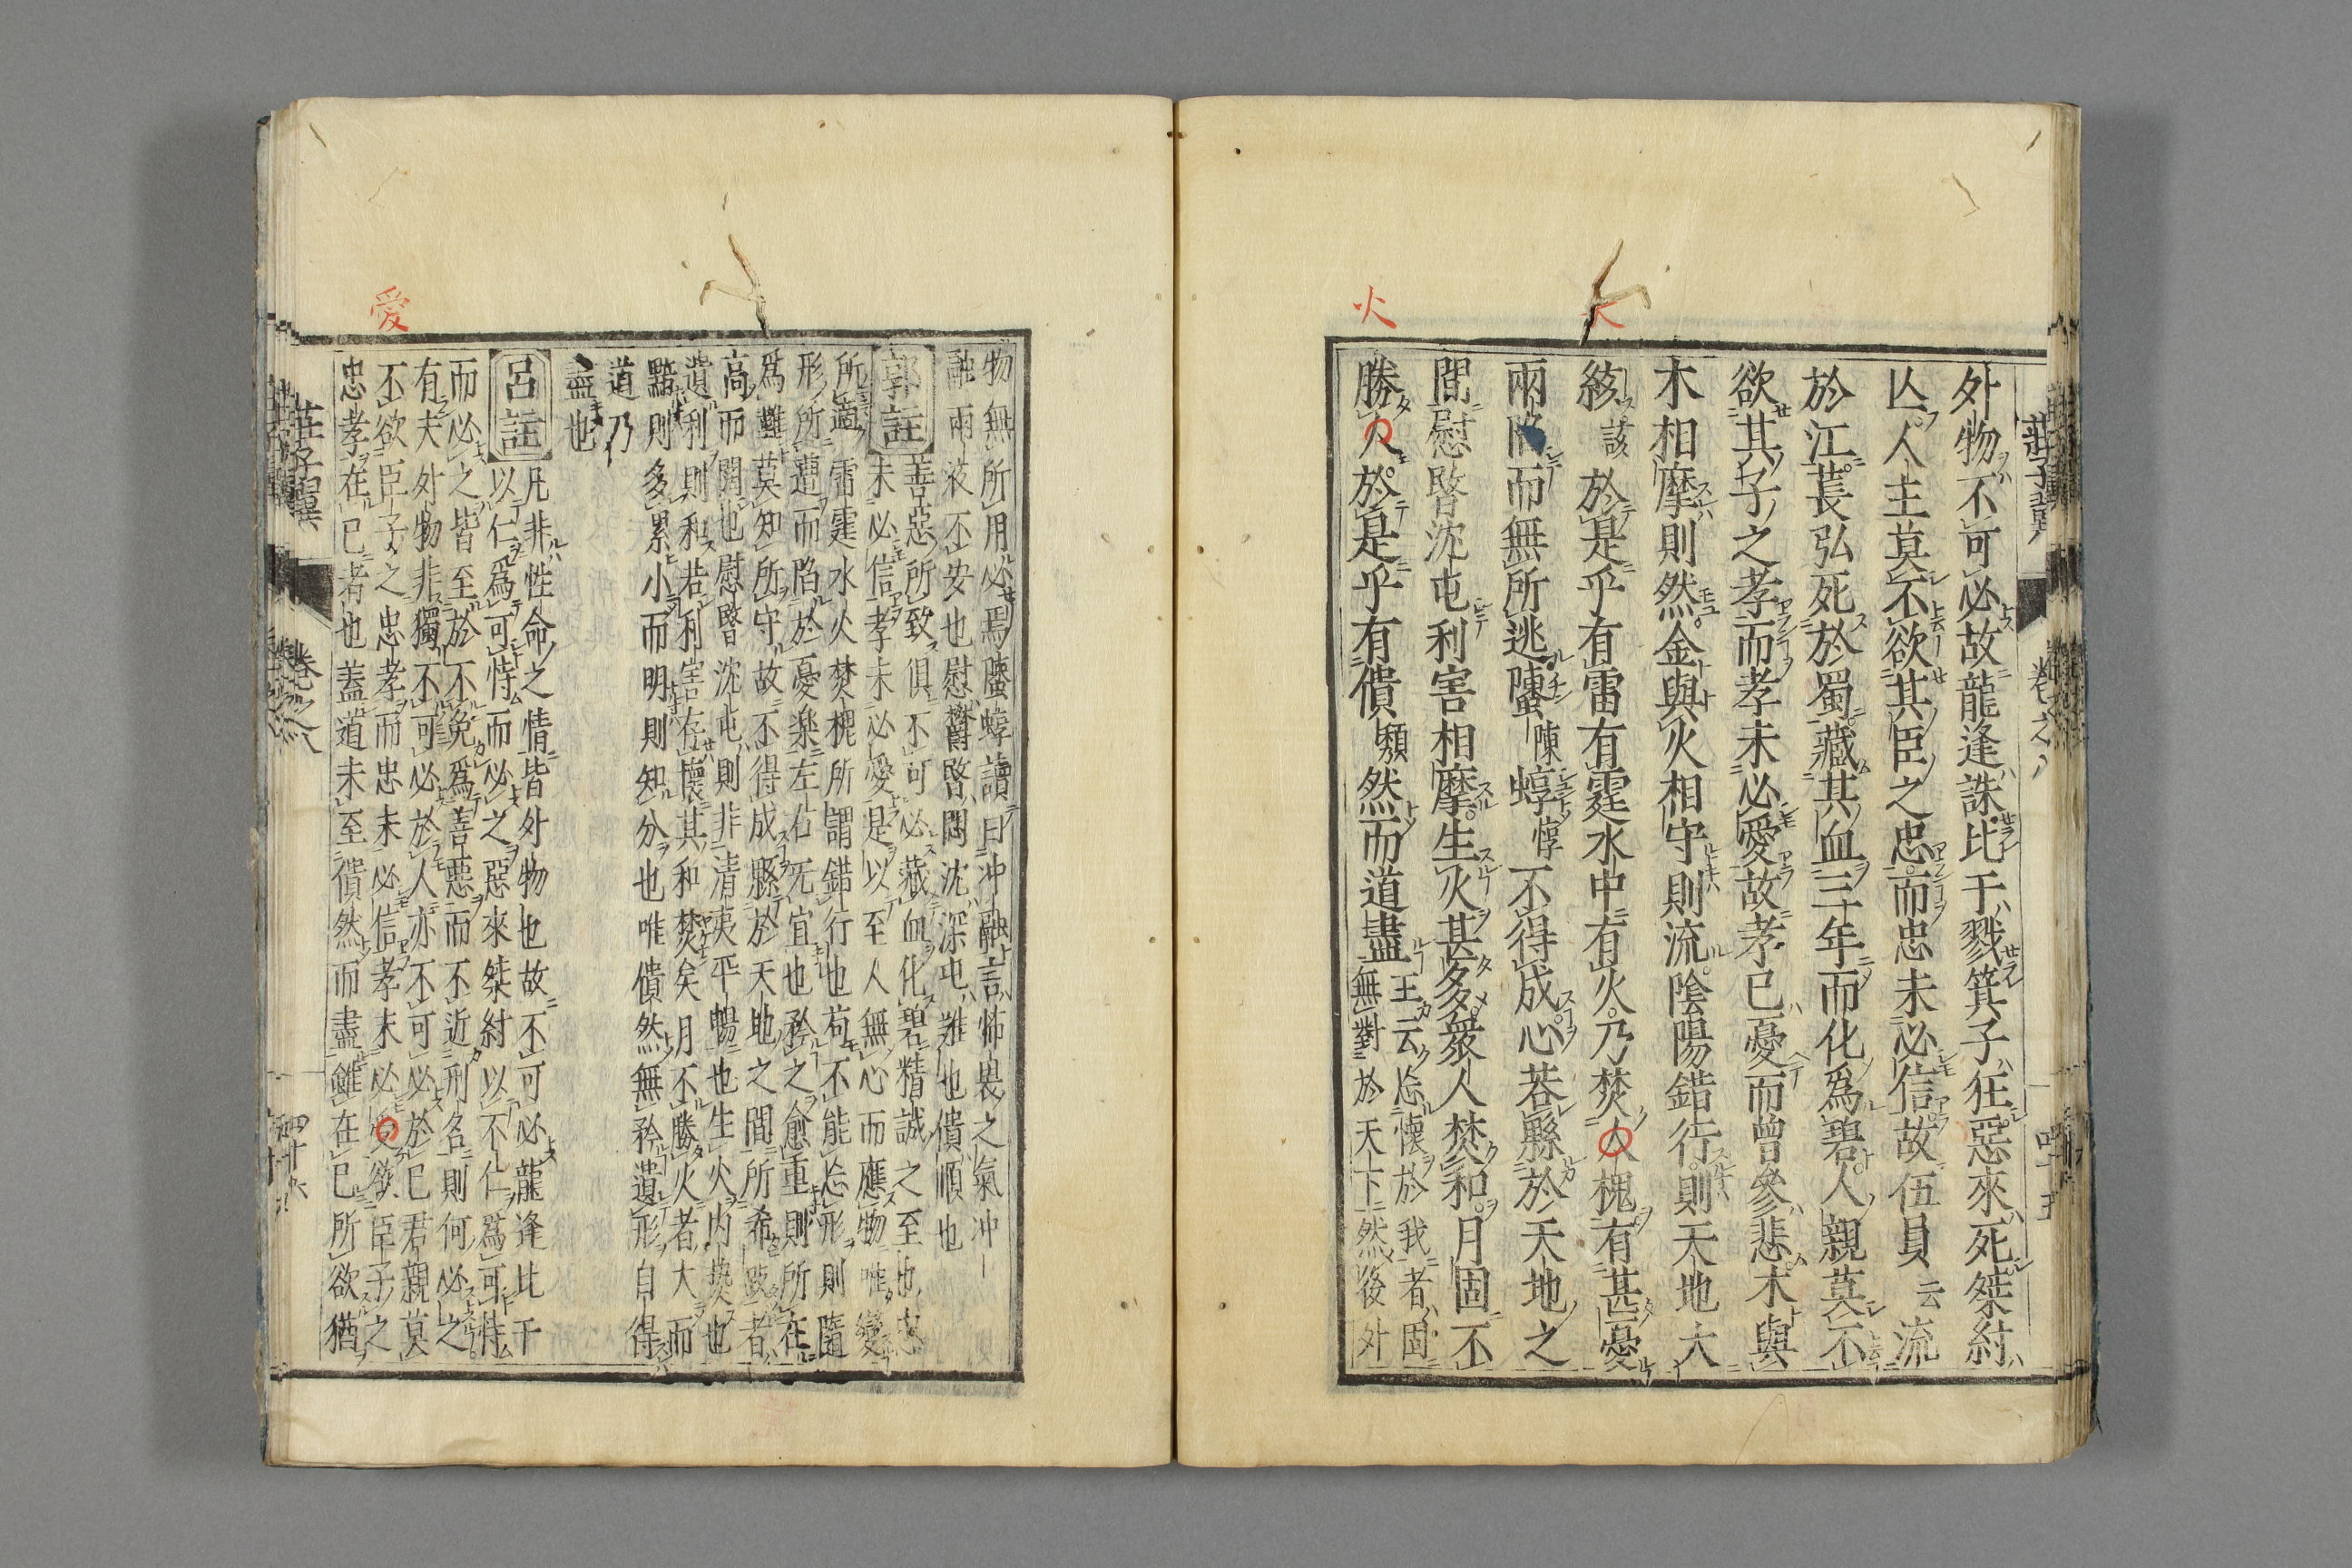 莊子翼
卷之八
四十五
外物不可必故龍逢誅比干戮箕子狂惡來死桀紂
亾人主莫不欲其臣之忠而忠未必信故伍員云流
於江萇弘死於蜀藏其血三年而化爲碧人親莫不
欲其子之孝而孝未必愛故孝已憂而曾參悲木與
木相摩則然金與火相守則流陰陽錯行則天地大
絯該於是乎有雷有霆水中有火乃焚人槐有甚憂
兩陷而無所逃螴陳蜳惇不得成心若縣於天地之
間慰暋沈屯利害相摩生火甚多衆人焚和月固不
勝人於是乎有僓頺然而道盡王云忘懷於我者固
無對於天下然後外
火
火
物無所用必焉螴蜳讀曰冲融言怖畏之氣冲
融兩液不安也慰鬱暋悶沈深屯難也僓順也
郭註
善惡所致俱不可必藏血化碧精誠之至也忠
未必信孝未必愛是以至人無心而應物唯變
所適雷霆水火焚槐所謂錯行也苟不能忘形則隨
形所遭而陷於憂樂左右无宜也矜之愈重則所在
爲難莫知所守故不得成縣於天地之間所希跂者
高而闊也慰暋沈屯則非清夷平暢也生火内熱也
遺利則和若利害存懷其和焚矣月不勝火者大而
黯則多累小而明則知分也唯僓然無矜遺形自得
道乃
盡也
呂註
凡非性命之情皆外物也故不可必龍逢比干
以仁爲可恃而必之惡來桀紂以不仁爲可恃
而必之皆至於不免爲善惡而不近刑名則何必之
有夫外物非獨不可必於人亦不可必於已君親莫
不欲臣子之忠孝而忠未必信孝未必人欲臣子之
忠孝在已者也蓋道未至僓然而盡雖在已所欲猶
愛
莊子翼
卷之八
四十六